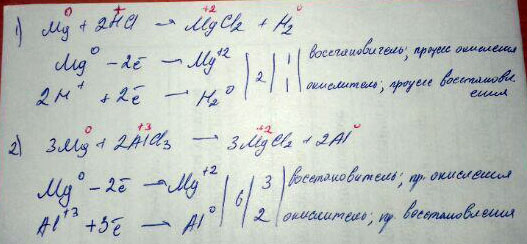 1) Mg⁰ + 2H⁺Cl → Mg⁺²Cl₂ + H₂⁰
Mg⁰ – 2ē → Mg⁺² | 2 | 1 | восстановитель; процес окисления
2H⁺ + 2ē → H₂⁰ | 1 | окислитель; процес восстановления
2) 3Mg⁰ + 2Al⁺³Cl₃ → 3Mg⁺²Cl₂ + 2Al⁰
Mg⁰ – 2ē → Mg⁺² | 6 | 3 | восстановитель; пр. окисления
Al⁺³ + 3ē → Al⁰ | 2 | окислитель; пр. восстановления